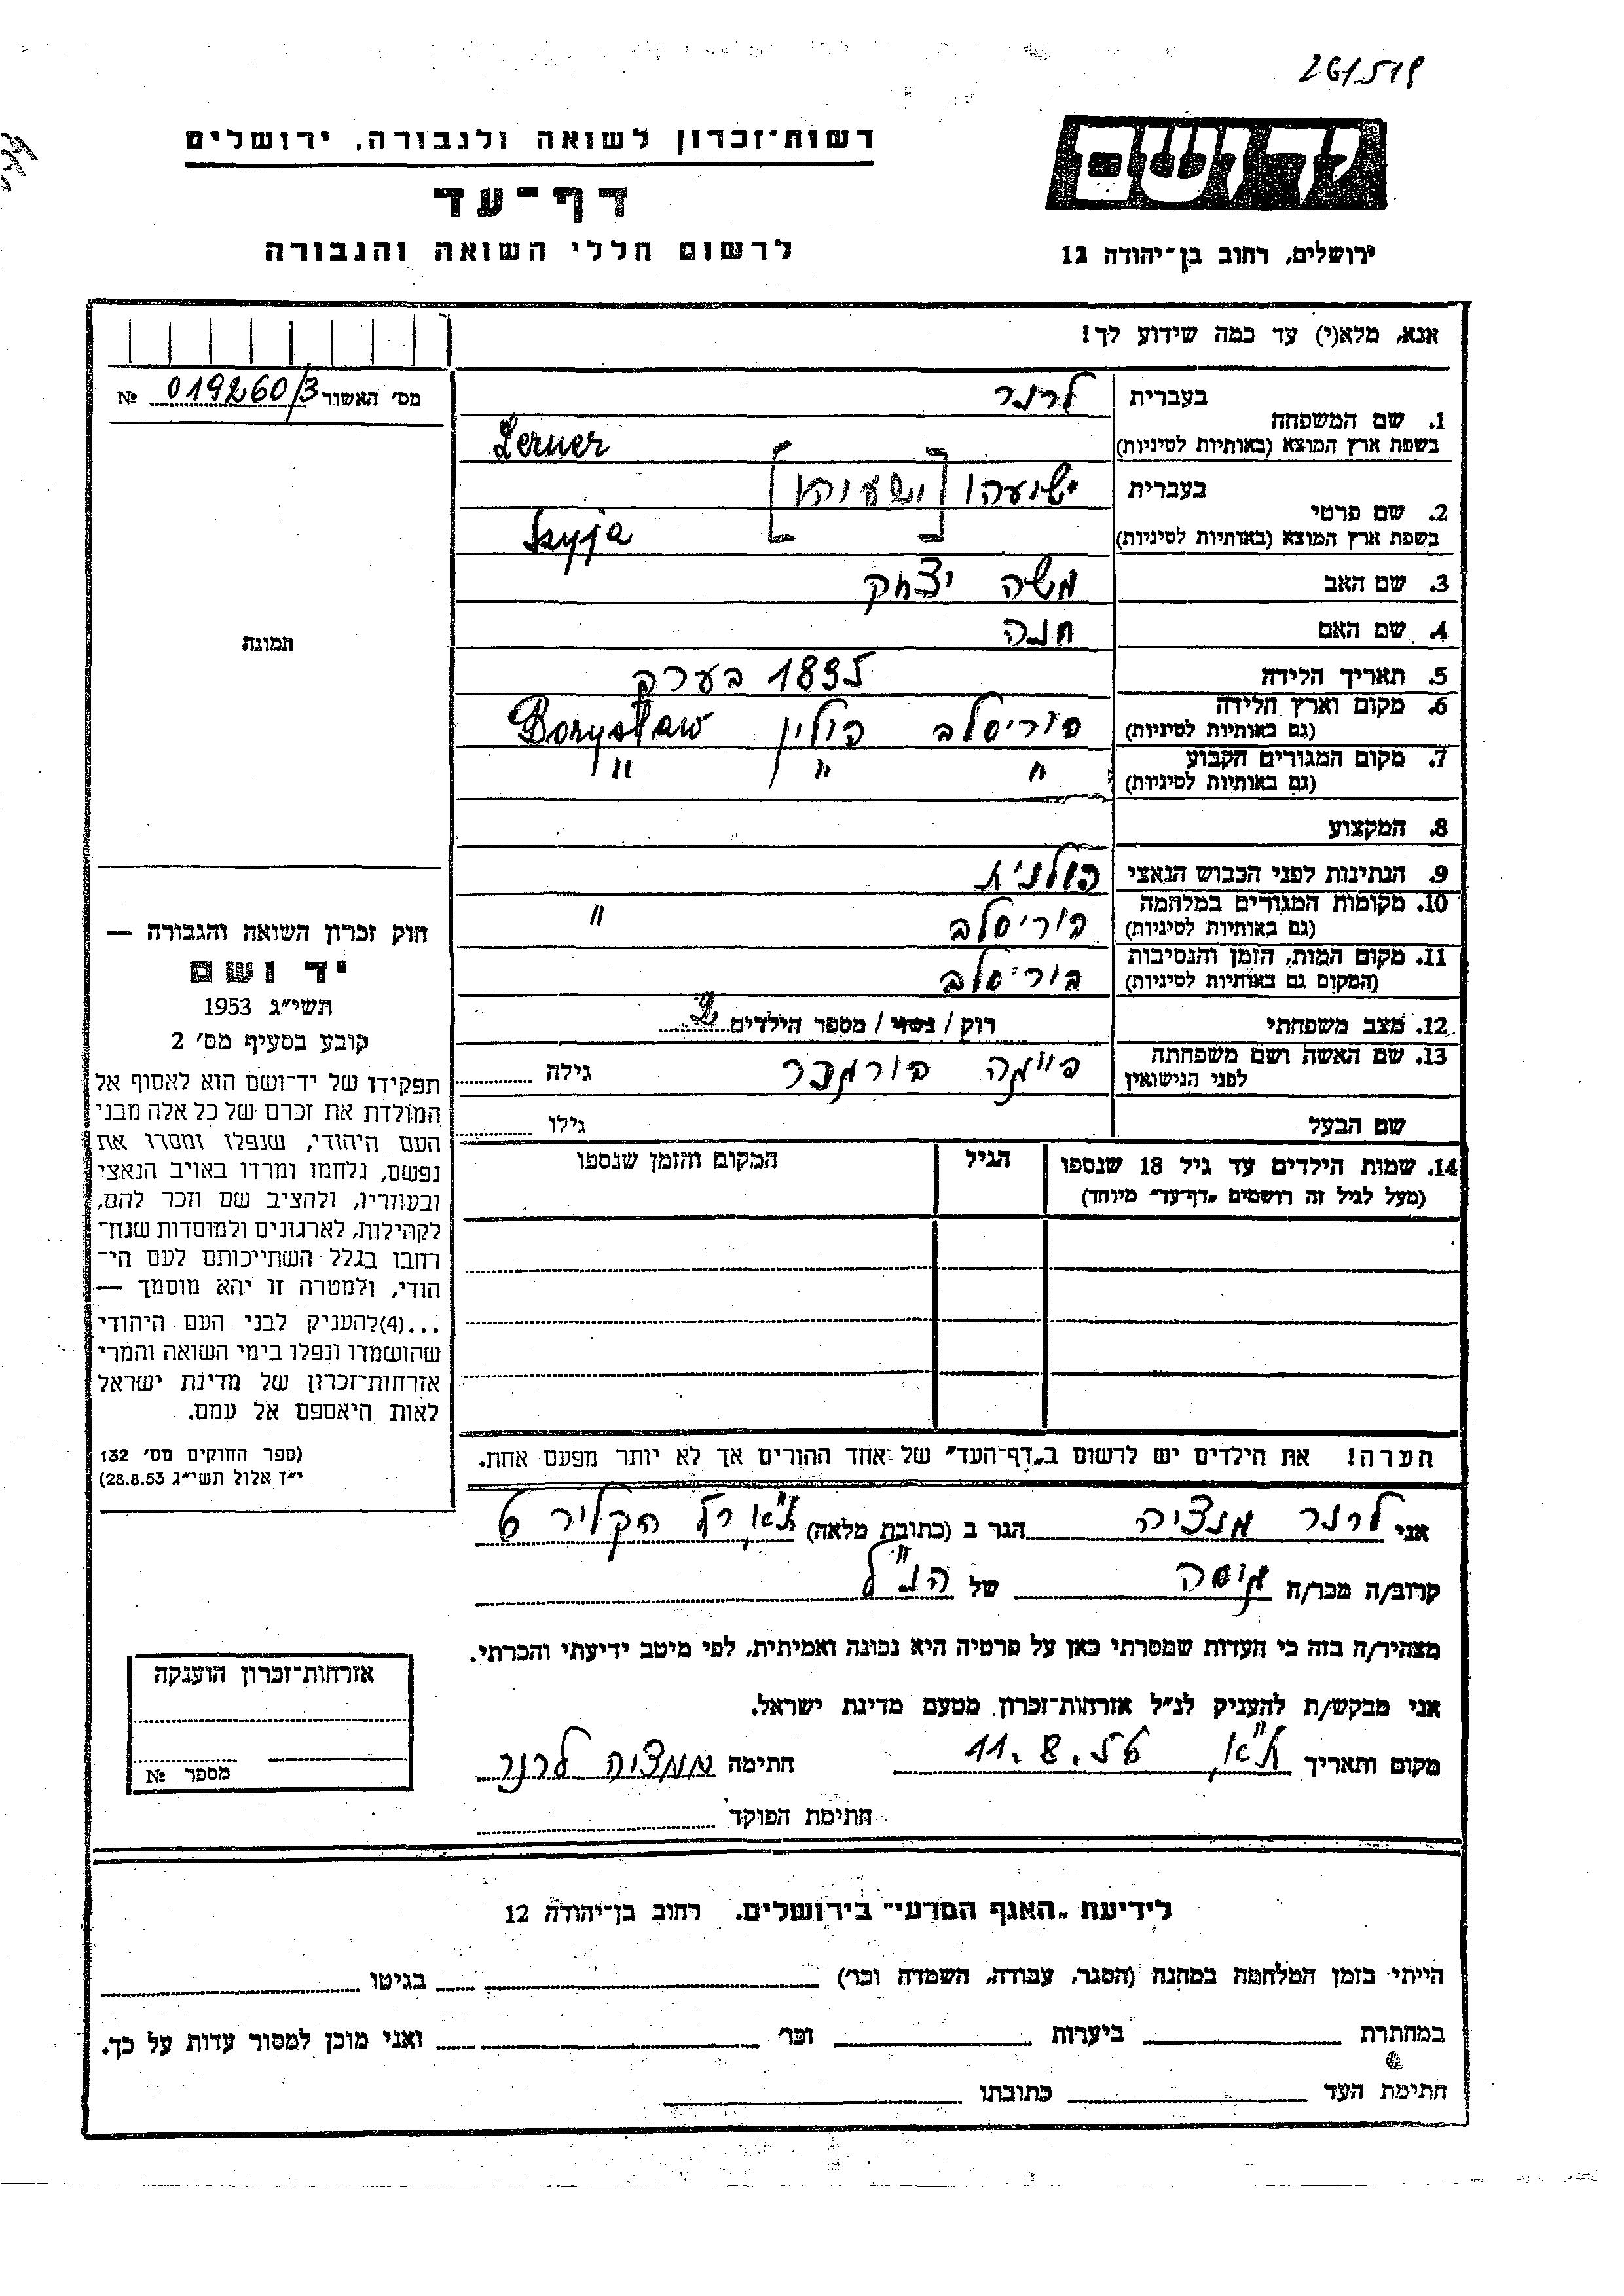 261/519
רשות־זכרון לשואה ולגבורה, ירושלים
יד ושם
דף־עד
לרשום חללי השואה והגבורה
ירושלים, רחוב בן־יהודה 12
אנא, מלא(י) עד כמה שידוע לך!
מס' האשור № 019260/3
1. שם המשפחה
בעברית לרנר
בשפת ארץ המוצא (באותיות לטיניות) Lerner
2. שם פרטי
בעברית ישועהו [ישעיהו]
בשפת ארץ המוצא (באותיות לטיניות) Szyja
3. שם האב משה יצחק
4. שם האם חנה
5. תאריך הלידה 1895 בערך
6. מקום וארץ הלידה בוריסלב פולין Borysław
(גם באותיות לטיניות)
7. מקום המגורים הקבוע " " "
(גם באותיות לטיניות)
8. המקצוע
9. הנתינות לפני הכבוש הנאצי פולנית
10. מקומות המגורים במלחמה בוריסלב "
(גם באותיות לטיניות)
11. מקום המות, הזמן והנסיבות בוריסלב
(המקום גם באותיות לטיניות)
12. מצב משפחתי רוק / נשוי / מספר הילדים 2
13. שם האשה ושם משפחתה
לפני הנישואין גילה
שם הבעל גילו
14. שמות הילדים עד גיל 18 שנספו הגיל המקום והזמן שנספו
(מעל לגיל זה רושמים „דף־עד" מיוחד)
הערה! את הילדים יש לרשום ב„דף־העד" של אחד ההורים אך לא יותר מפעם אחת.
תמונה
חוק זכרון השואה והגבורה —
יד ושם
תשי"ג 1953
קובע בסעיף מס' 2
תפקידו של יד־ושם הוא לאסוף אל
המולדת את זכרם של כל אלה מבני
העם היהודי, שנפלו ומסרו את
נפשם, נלחמו ומרדו באויב הנאצי
ובעוזריו, ולהציב שם וזכר להם,
לקהילות, לארגונים ולמוסדות שנח־
רחבו בגלל השתייכותם לעם הי־
הודי, ולמטרה זו יהא מוסמך —
...(4)להעניק לבני העם היהודי
שהושמדו ונפלו בימי השואה והמרי
אזרחות־זכרון של מדינת ישראל
לאות היאספם אל עמם.
(ספר החוקים מס' 132
י"ז אלול תשי"ג 28.8.53)
אני לרנר מנציה הגר ב (כתובת מלאה) ת"א רח הקליר 6
קרוב/ה מכר/ה גיסה של הנ"ל
מצהיר/ה בזה כי העדות שמסרתי כאן על פרטיה היא נכונה ואמיתית, לפי מיטב ידיעתי והכרתי.
אני מבקש/ת להעניק לנ"ל אזרחות־זכרון מטעם מדינת ישראל.
מקום ותאריך ת"א 11.8.56 חתימה מנציה לרנר
חתימת הפוקד
אזרחות־זכרון הוענקה
מספר №
לידיעת „האגף המדעי" בירושלים. רחוב בן־יהודה 12
הייתי בזמן המלחמה במחנה (הסגר, עבודה, השמדה וכר') בגיטו
במחתרת ביערות וכר' ואני מוכן למסור עדות על כך.
חתימת העד כתובתו